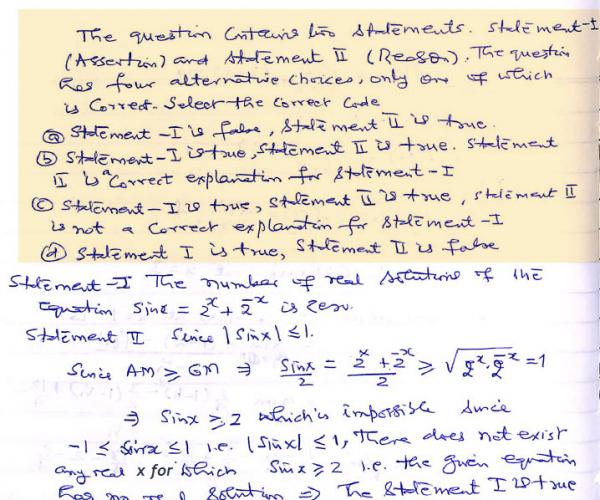 The question contains two statements. Statement-I
(Assertion) and Statement II (Reason). The question
has four alternative choices, only one of which
is correct. Select the correct code
(a) Statement-I is false, Statement II is true.
(b) Statement-I is true, Statement II is true. Statement
II is a correct explanation for Statement-I
(c) Statement-I is true, Statement II is true, Statement II
is not a correct explanation for Statement-I
(d) Statement I is true, Statement II is false
Statement-I The number of real solutions of the
Equation Sinx = 2^x + 2^-x is zero.
Statement II Since |Sinx| ≤ 1.
Since AM ≥ GM ⇒ Sinx/2 = (2^x + 2^-x)/2 ≥ √(2^x · 2^-x) = 1
⇒ Sinx ≥ 2 which is impossible since
-1 ≤ Sinx ≤ 1 i.e. |Sinx| ≤ 1, There does not exist
any real x for which Sinx ≥ 2 i.e. the given equation
has no real solution ⇒ The Statement I is true